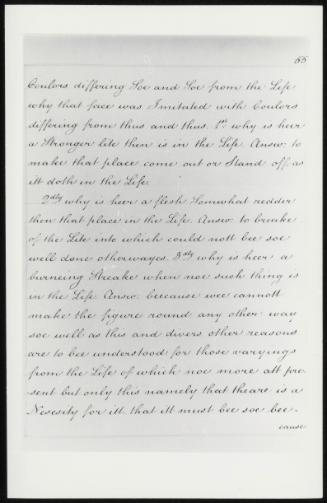 65
Coulors differing Soe and Soe from the Life
why that face was Imitated with Coulors
differing from thus and thus. 1st why is heer
a Stronger lite then is in the Life. Answ: to
make that place come out or Stand off as
itt doth in the Life.
2dly why is heer a flesh Somwhat redder
then that place in the Life. Answ. to breake
of the Lite into which could nott bee soe
well done otherwayes. 3dly why is heer a
burneing Streake when noe such thing is
in the Life. Answ. beecause wee cannott
make the figure round any other way
soe well as this and divers other reasons
are to bee understood for those varyings
from the Life of which noe more att pre
sent but only this namely that theare is a
Nesesity for itt. that itt must bee soe bee-
cause